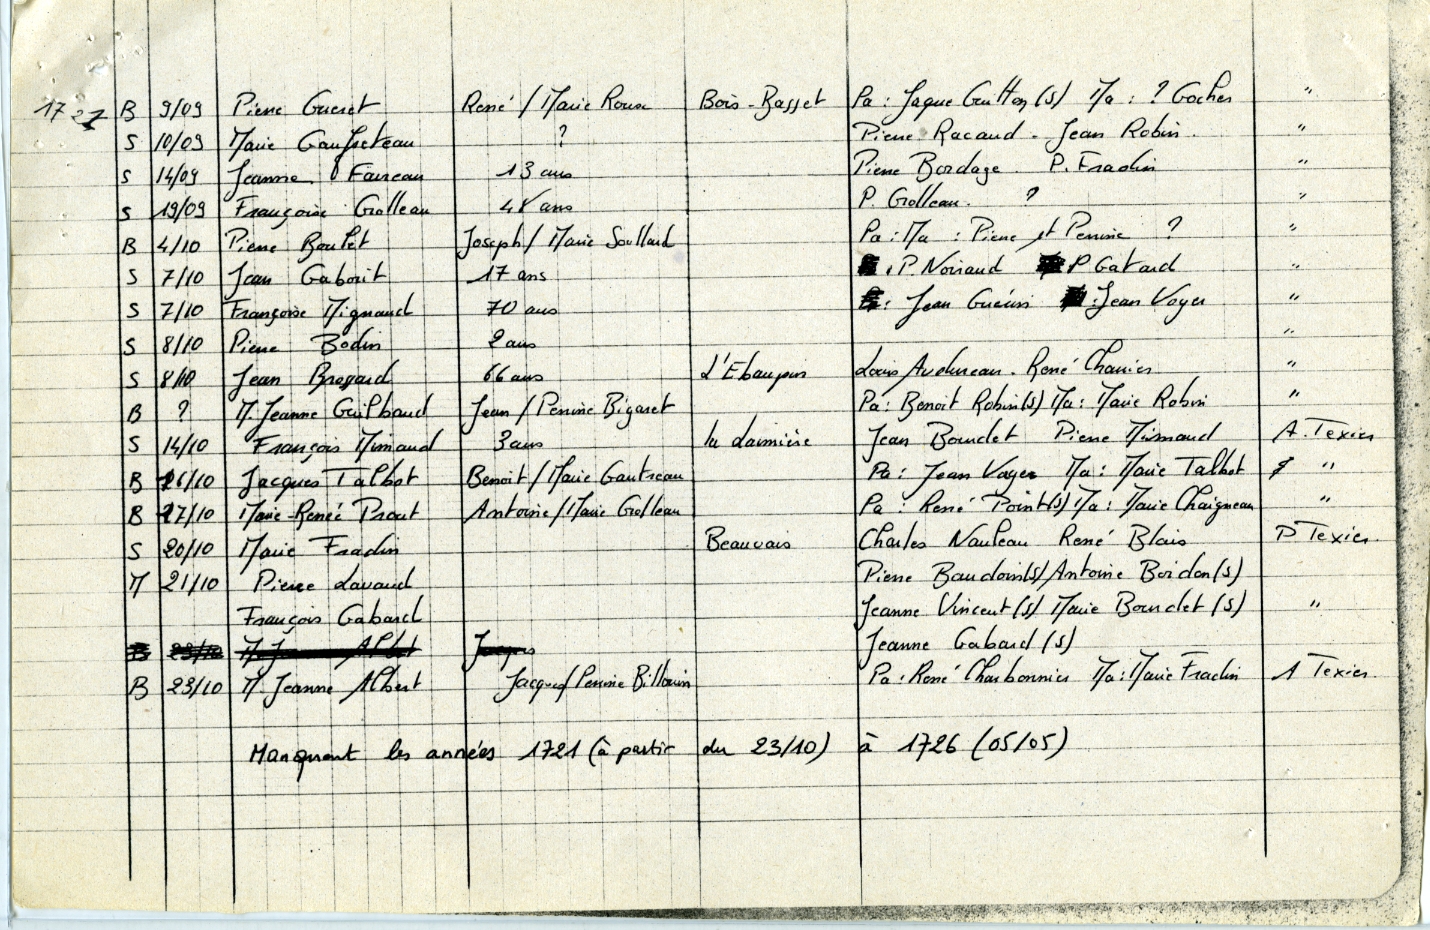 1721 B 9/09 Pierre Gueret René / Marie Roux Bois-Basset Pa : Jaque Guitton (s) Ma : ? Gocher "
S 10/09 Marie Gaufreteau ? Pierre Racaud - Jean Robin. "
S 14/09 Jeanne Favreau 13 ans Pierre Bordage. P. Fradin "
S 19/09 Françoise Grolleau 48 ans P. Grolleau. ? "
B 4/10 Pierre Boulet Joseph / Marie Soullard Pa : Ma : Pierre et Perrine ? "
S 7/10 Jean Gaborit 17 ans P Noiraud P Gatard "
S 7/10 Françoise Mignaud 70 ans : Jean Guérin : Jean Voyer "
S 8/10 Pierre Bodin 2 ans "
S 8/10 Jean Bregard 66 ans L'Ebaupin Louis Auduneau. René Charrier "
B ? M. Jeanne Guilbaud Jean / Perrine Bigaret Pa : Benoit Robin (s) Ma : Marie Robin "
S 14/10 François Mimaud 3 ans la Lamière Jean Bourdet Pierre Mimaud A. Texier
B 16/10 Jacques Talbot Benoit / Marie Gautreau Pa : Jean Voyer Ma : Marie Talbot "
B 17/10 Marie-Renée Prout Antoine / Marie Grolleau Pa : René Point (s) Ma : Marie Chaigneau "
S 20/10 Marie Fradin Beauvais Charles Nauleau René Blais P Texier.
M 21/10 Pierre Lavaud Pierre Baudoin (s) / Antoine Boidon (s)
François Gabard Jeanne Vincent (s) Marie Bourdet (s) "
B 23/10 M. Jeanne Albet Jacques Jeanne Gabard (s)
B 23/10 M. Jeanne Albert Jacques / Perrine Billouin Pa : René Charbonnier Ma : Marie Fradin A Texier.
Manquent les années 1721 (à partir du 23/10) à 1726 (05/05)